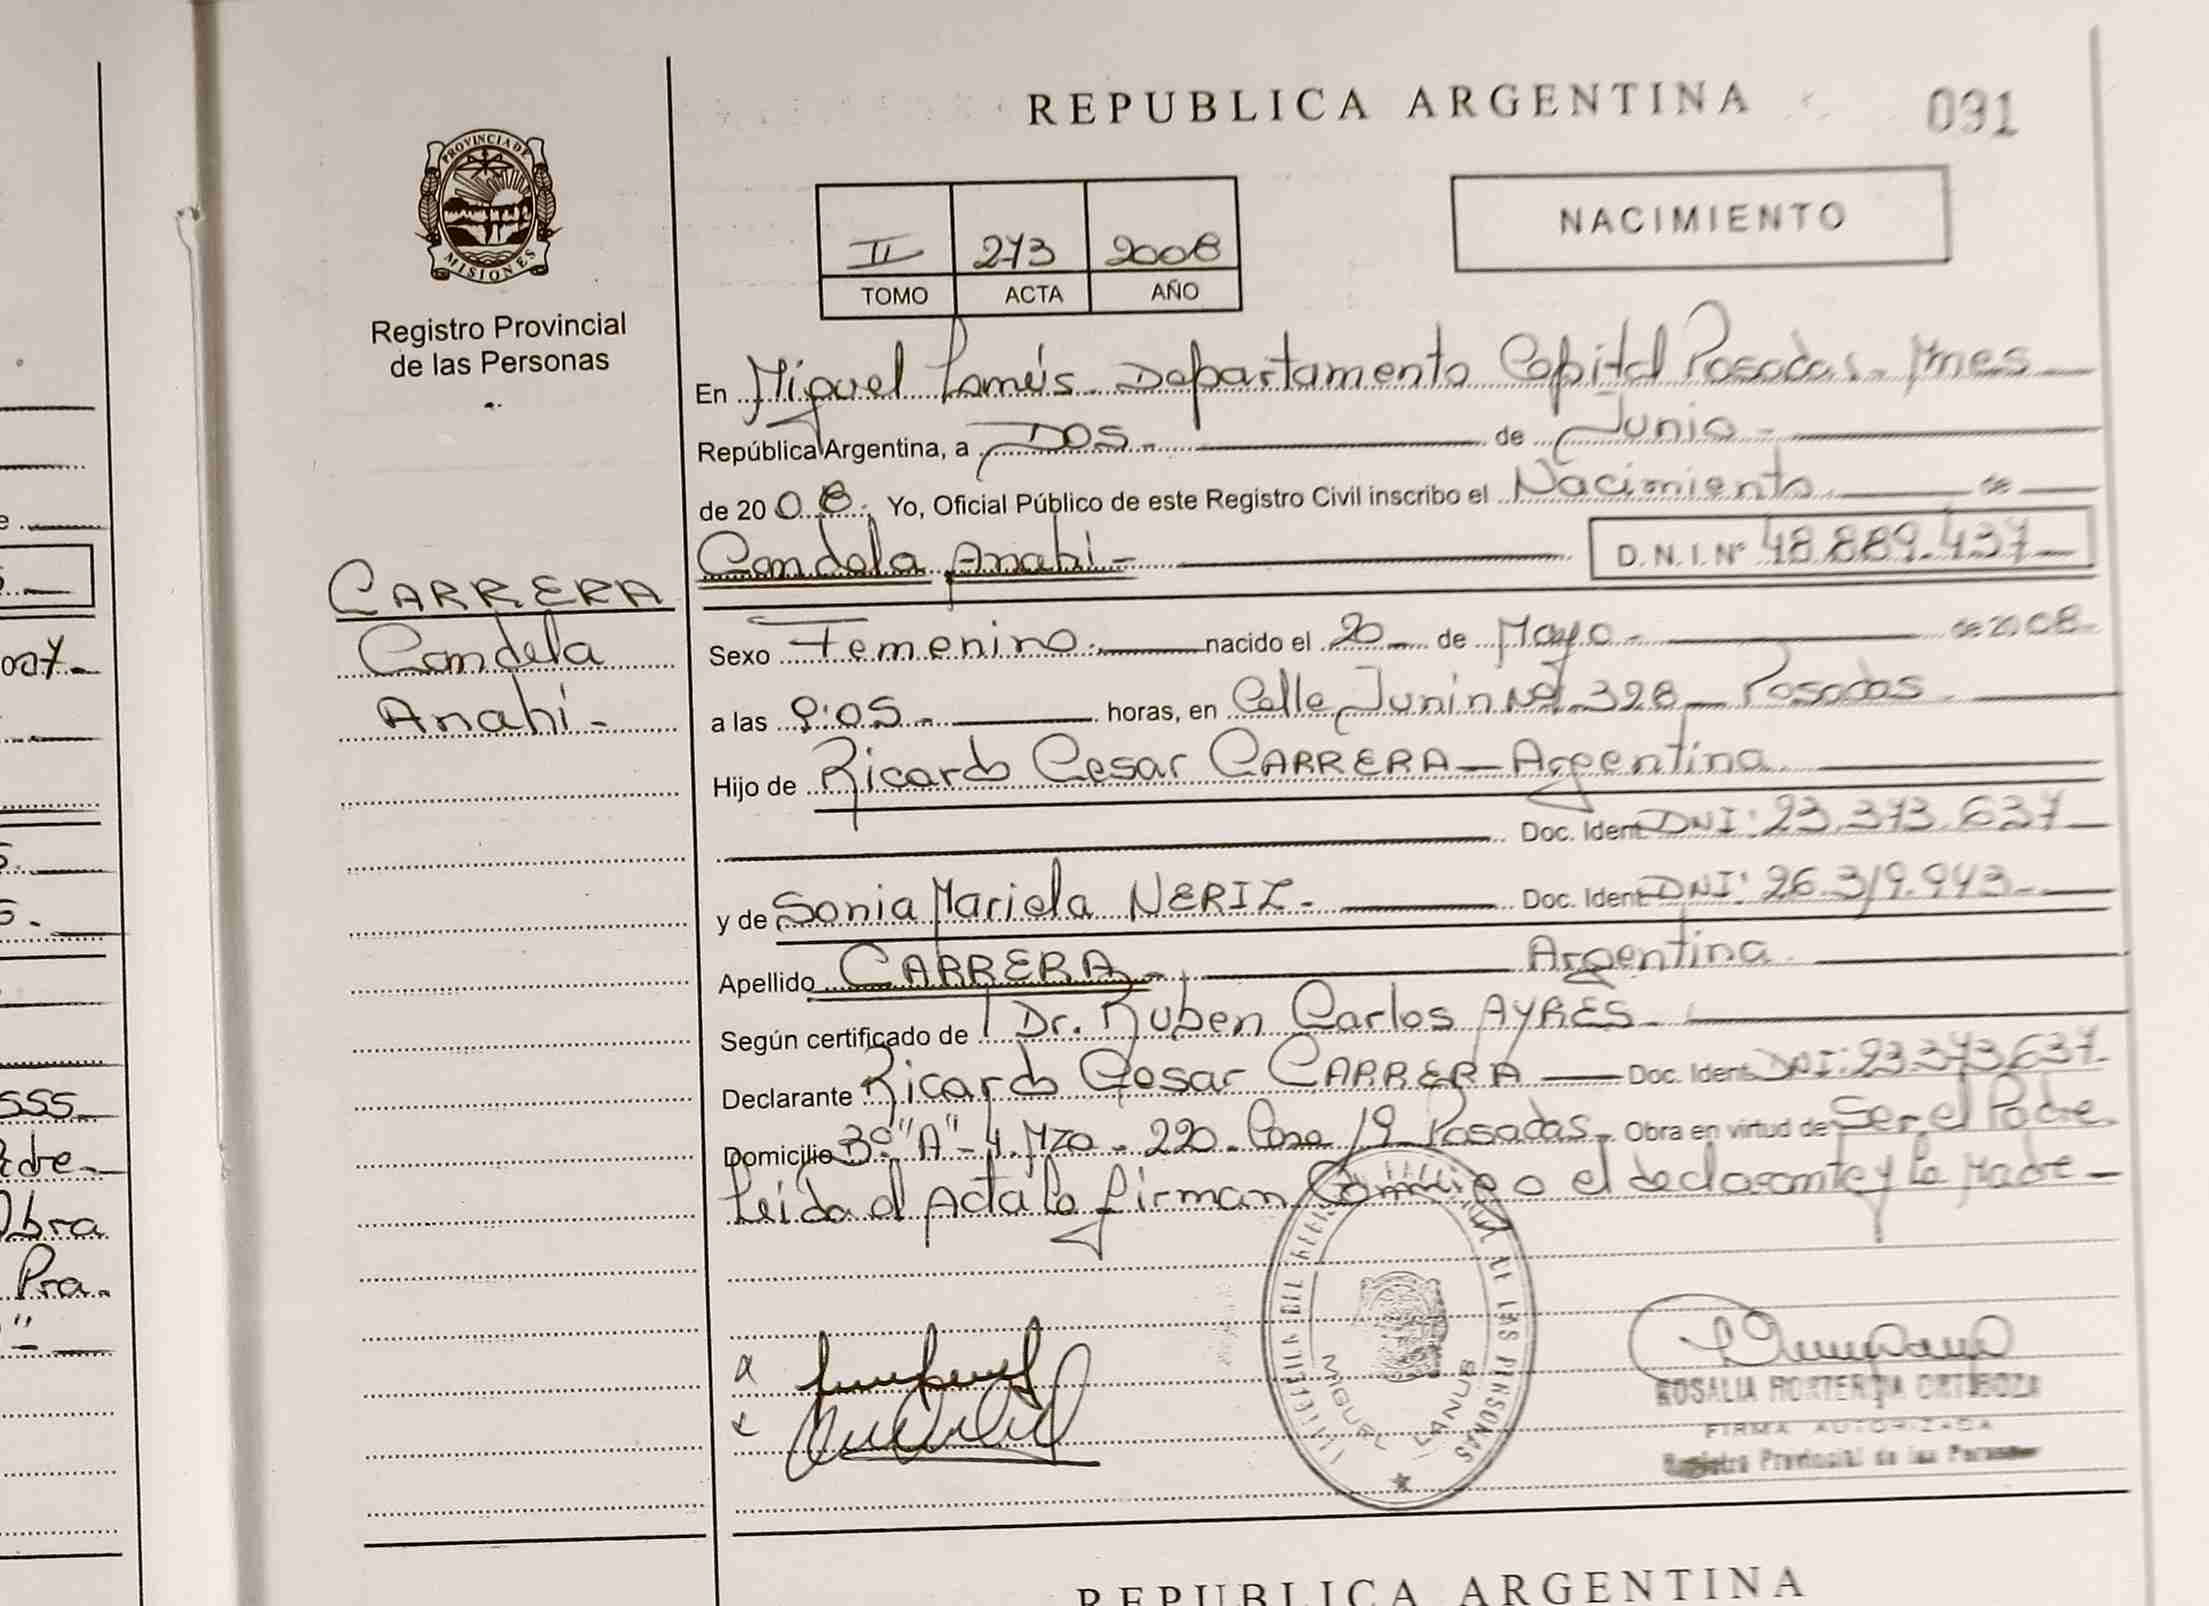 REPUBLICA ARGENTINA
031
PROVINCIA DE
MISIONES
Registro Provincial
de las Personas
II 273 2008
TOMO ACTA AÑO
NACIMIENTO
En Miguel Lanús. Departamento Capital Posadas. Mnes
República Argentina, a DOS.- de Junio -
de 2008. Yo, Oficial Público de este Registro Civil inscribo el Nacimiento de
Candela Anahi - D.N.I.Nº 48.889.437
CARRERA
Candela
Anahi -
Sexo Femenino. nacido el 20 de Mayo - de 2008-
a las 8:05 - horas, en Calle Junin Nº 328 Posadas
Hijo de Ricardo Cesar CARRERA - Argentina
Doc. Ident. DNI: 23.373.637
y de Sonia Mariela NERIZ. Doc. Ident. DNI: 26.319.943-
Apellido CARRERA - Argentina
Según certificado de Dr. Ruben Carlos AYRES
Declarante Ricardo Cesar CARRERA Doc. Ident. DNI: 23.373.637-
Domicilio 3º "A" - 4. Mza - 220 - Casa 19 Posadas. Obra en virtud de Ser el Padre.
Leida el Acta la firman Conmigo el declarante y la Madre -
DE LAS PERSONAS
MIGUEL LANUS
ROSALIA HORTENCIA
FIRMA AUTORIZADA
Registro Provincial de las Personas
REPUBLICA ARGENTINA
007-
555
Padre
Obra
Pra.